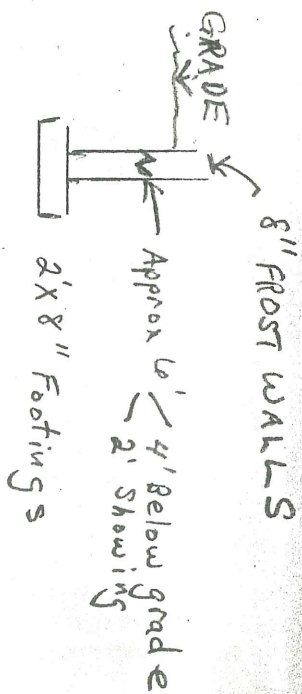 8" FROST WALLS
GRADE
Approx 6' < 4' Below grade
2' Showing
2' X 8" Footings